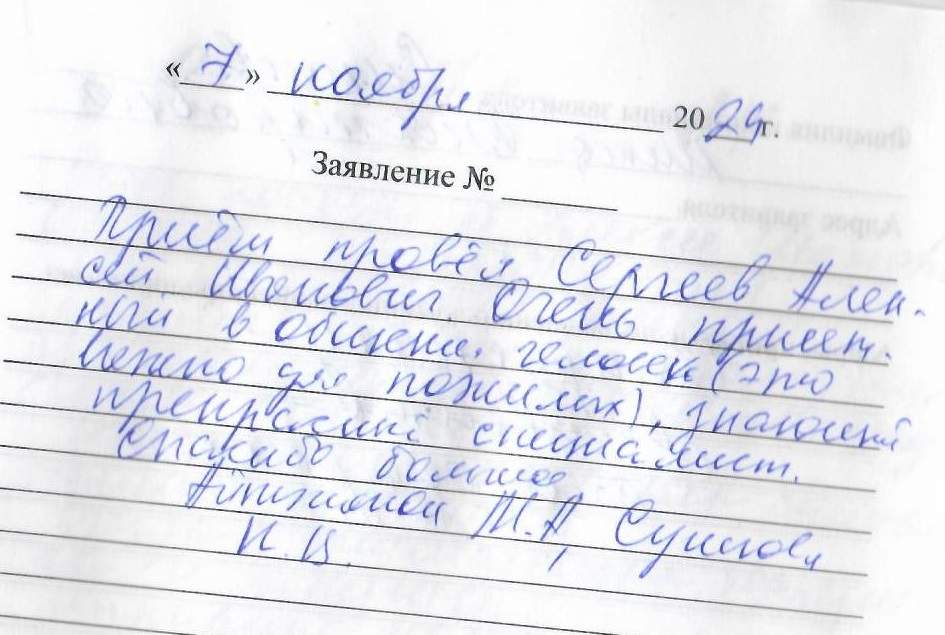 «7» ноября 2024 г.
Заявление №
Приём провёл Сергеев Алек-
сей Иванович Очень прият-
ный в общении человек (это
важно для пожилых), знающий
прекрасный специалист.
Спасибо большое
М.А,
Н.Ц.